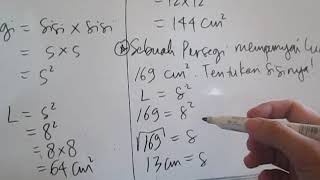 gi = sisi x sisi
= s x s
= s²
L = s²
= 8²
= 8 x 8
= 64 cm²
= 12 x 12
= 144 cm²
Sebuah Persegi mempunyai
169 cm². Tentukan sisinya!
L = s²
169 = s²
√169 = s
13 cm = s